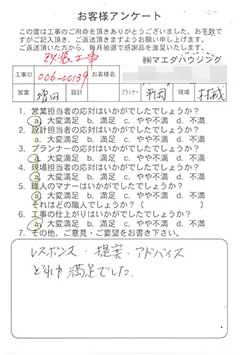 お客様アンケート
この度は工事のご用命を頂きありがとうございました。お手数で
すがご記入頂き、ご返送頂きますようお願い申し上げます。
ご返送頂いた方から、毎月抽選で感謝品を差し上げております。
改装工事
㈱マエダハウジング
工事ID 006-00139 お客様名
営業 増田 設計 プランナー 平岡 現場 村成
1. 営業担当者の応対はいかがでしたでしょうか?
a. 大変満足 b. 満足 c. やや不満 d. 不満
2. 設計担当者の応対はいかがでしたでしょうか?
a. 大変満足 b. 満足 c. やや不満 d. 不満
3. プランナーの応対はいかがでしたでしょうか?
a. 大変満足 b. 満足 c. やや不満 d. 不満
4. 現場担当者の応対はいかがでしたでしょうか?
a. 大変満足 b. 満足 c. やや不満 d. 不満
5. 職人のマナーはいかがでしたでしょうか?
a. 大変満足 b. 満足 c. やや不満 d. 不満
それはどの職人でしょうか?( )
6. 工事の仕上がりはいかがでしたでしょうか?
a. 大変満足 b. 満足 c. やや不満 d. 不満
7. その他、ご意見・ご要望をお書き下さい。
レスポンス・提案・アドバイス
どれも満足でした。